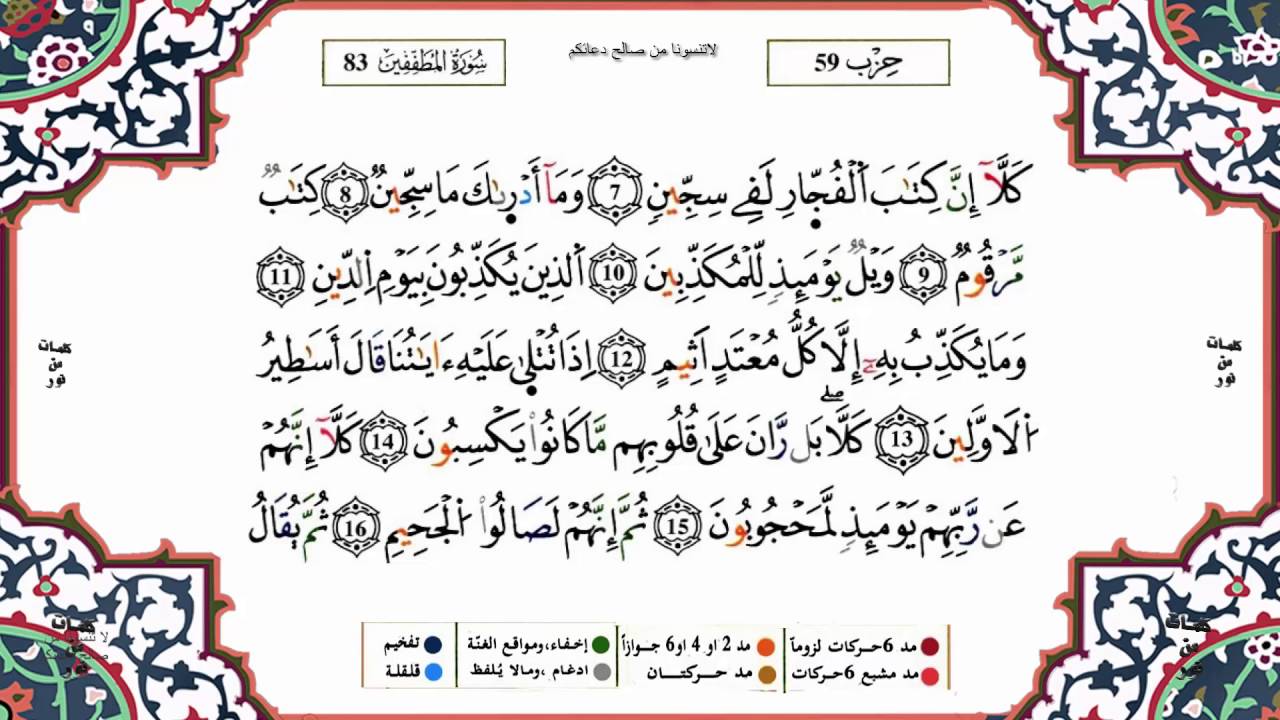 حِزْب 59
لاتنسونا من صالح دعائكم
سُورَةُ الْمُطَفِّفِينَ 83
كَلَّآ إِنَّ كِتَٰبَ اَ۬لْفُجِّارِ لَفِے سِجِّينٖ 7 وَمَآ أَدْر۪ىٰكَ مَا سِجِّينٞ 8 كِتَٰبٞ
مَّرْقُومٞ 9 وَيْلٞ يَوْمَئِذٖ لِّلْمُكَذِّبِينَ 10 اَ۬لذِينَ يُكَذِّبُونَ بِيَوْمِ اِ۬لدِّينِ 11
وَمَا يُكَذِّبُ بِهِۦٓ إِلَّا كُلُّ مُعْتَدٍ اَثِيمٍ 12 اِذَا تُتْل۪ىٰ عَلَيْهِ ءَايَٰتُنَا قَالَ أَسَٰطِيرُ
اُ۬لَاوَّلِينَ 13 كَلَّاۖ بَل رَّانَ عَلَىٰ قُلُوبِهِم مَّا كَانُواْ يَكْسِبُونَ 14 كَلَّآ إِنَّهُمْ
عَن رَّبِّهِمْ يَوْمَئِذٖ لَّمَحْجُوبُونَ 15 ثُمَّ إِنَّهُمْ لَصَالُواْ اُ۬لْجَحِيمِ 16 ثُمَّ يُقَالُ
كلمات
من
نور
كلمات
من
نور
مد 6 حركات لزوماً
مد 2 او 4 او 6 جوازاً
إخفاء، ومواقع الغنّة
تفخيم
مد مشبع 6 حركات
مد حركتان
ادغام، ومالا يُلفظ
قلقلة
كلمات
من
نور